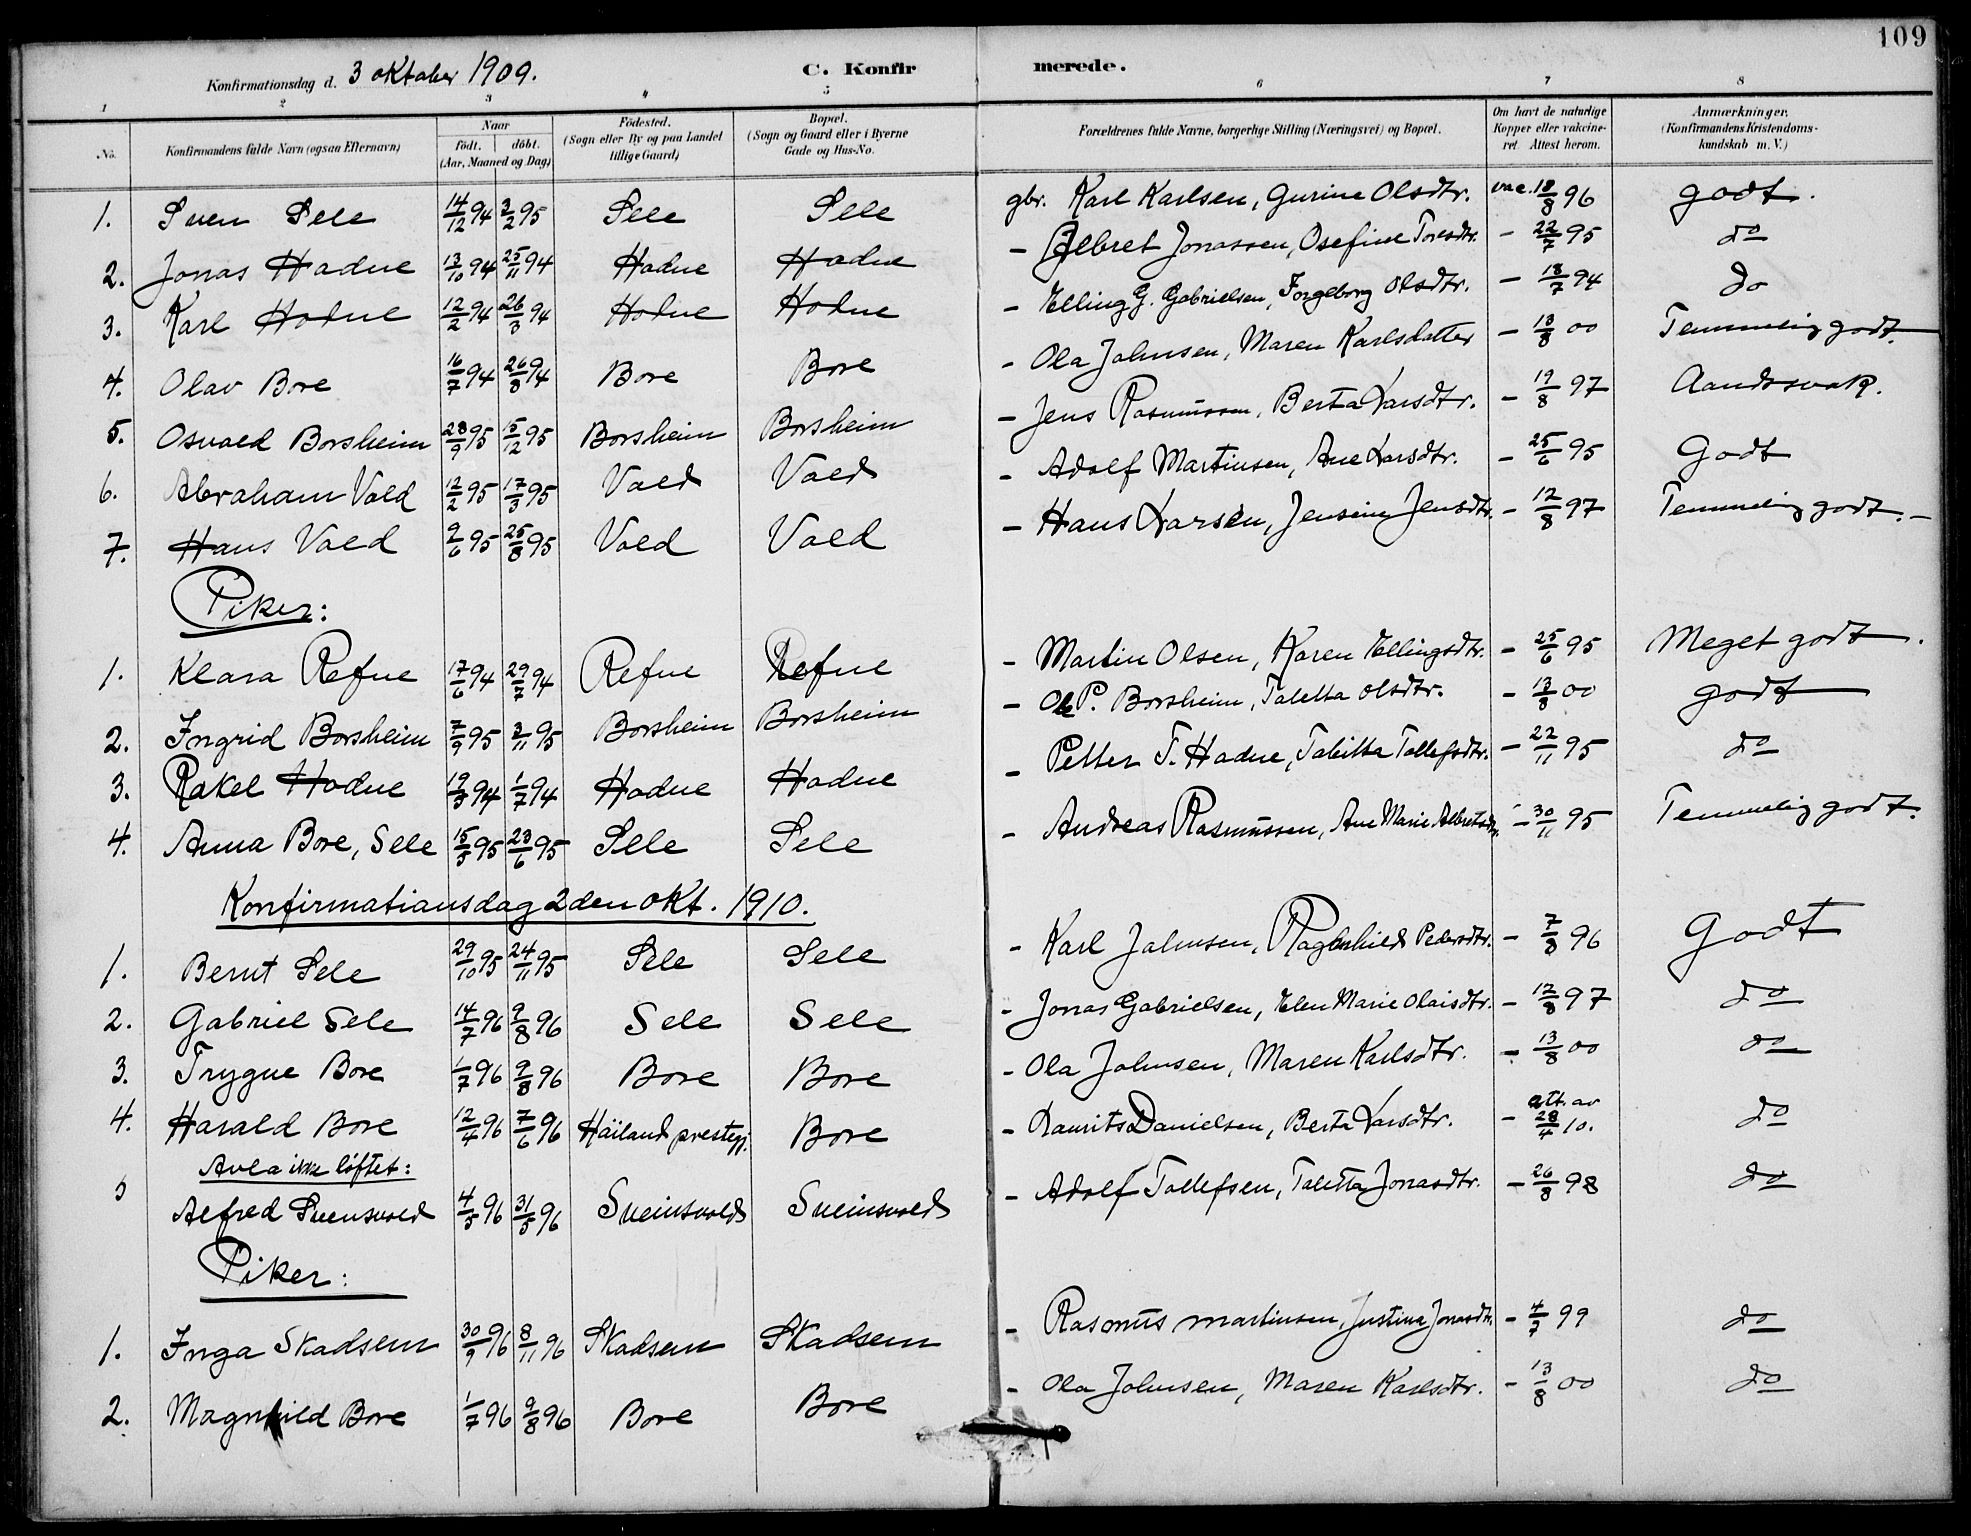 109
Konfirmationsdag d. 3 oktober 1909. C. Konfirmerede.
1 2 3 4 5 6 7 8
No. Konfirmandens fulde Navn (ogsaa Efternavn) Naar födt. döbt. (Aar, Maaned og Dag) Födested. (Sogn eller By og paa Landet tillige Gaard) Bopæl. (Sogn og Gaard eller i Byerne Gade og Hus-No. Forældrenes fulde Navne, borgerlige Stilling (Næringsvei) og Bopæl. Om havt de naturlige Kopper eller vakcineret. Attest herom. Anmærkninger. (Konfirmandens Kristendomskundskab m. V.)
1. Sven Sele 14/12 94 3/2 95 Sele Sele gbr. Karl Karlsen, Gurine Olsdtr. vac. 18/8 96 godt.
2. Jonas Hodne 13/10 94 25/11 94 Hodne Hodne - Albret Jonassen, Osefine Toresdtr. - 22/7 95 do
3. Karl Hodne 12/2 94 26/3 94 Hodne Hodne - Elling G. Gabrielsen, Ingeborg Olsdtr. - 18/7 94 do
4. Olav Bore 16/7 94 26/8 94 Bore Bore - Ola Johnsen, Maren Karlsdatter - 13/8 00 Temmelig godt.
5. Osvald Borsheim 28/9 95 15/12 95 Borsheim Borsheim - Jens Rasmussen, Berta Larsdtr. - 19/8 97 Aandssvak.
6. Abraham Vold 12/2 95 17/3 95 Vold Vold - Adolf Martinsen, Ane Larsdtr. - 25/6 95 Godt
7. Hans Vold 2/6 95 25/8 95 Vold Vold - Hans Larsen, Jensine Jensdtr. - 12/8 97 Temmelig godt. -
Piker:
1. Klara Refne 17/6 94 29/7 94 Refne Refne - Martin Olsen, Karen Ellingsdtr. - 25/6 95 Meget godt.
2. Ingrid Borsheim 7/9 95 3/11 95 Borsheim Borsheim - Ole P. Borsheim, Taletta Olsdtr. - 13/8 00 godt
3. Rakel Hodne 19/5 94 1/7 94 Hodne Hodne - Petter T. Hodne, Tabitta Tollefsdtr. - 22/11 95 do
4. Anna Bore, Sele 15/5 95 23/6 95 Sele Sele - Andreas Rasmussen, Ane Marie Albretsdtr. - 30/11 95 Temmelig godt.
Konfirmationsdag 2den okt. 1910.
1. Bernt Sele 29/10 95 24/11 95 Sele Sele - Karl Johnsen, Ragnhild Pedersdtr. - 7/8 96 Godt
2. Gabriel Sele 14/7 96 9/8 96 Sele Sele - Jonas Gabrielsen, Elen Marie Olaisdtr. - 12/8 97 do
3. Trygve Bore 1/7 96 9/8 96 Bore Bore - Ola Johnsen, Maren Karlsdtr. - 13/8 00 do
4. Harald Bore 12/4 96 7/6 96 Håiland prestegj. Bore - Laurits Danielsen, Berta Larsdtr. - att. av 28/4 10. do
Avla ikke løftet:
5 Alfred Svensvold 4/5 96 31/5 96 Sveinsvold Sveinsvold - Adolf Tollefsen, Taletta Jonasdtr. - 26/8 98 do
Piker:
1. Inga Skadsem 30/9 96 8/11 96 Skadsem Skadsem - Rasmus Martinsen, Justina Jonasdtr. - 4/7 99 do
2. Magnhild Bore 1/7 96 9/8 96 Bore Bore - Ola Johnsen, Maren Karlsdtr. - 13/8 00 do